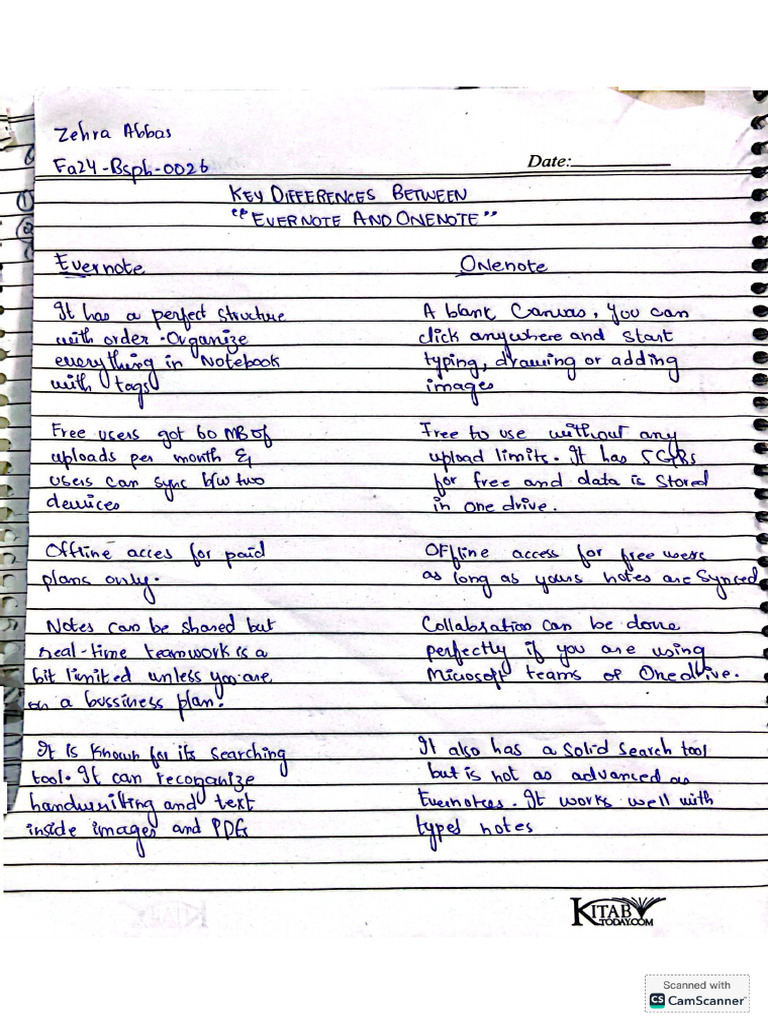 Zehra Abbas
Fa24-Bsph-0026
Date:
KEY DIFFERENCES BETWEEN
"EVERNOTE AND ONENOTE"
Evernote
Onenote
It has a perfect structure
with order. Organize
everything in Notebook
with tags
A blank Canvas, You can
click anywhere and start
typing, drawing or adding
images
Free users got 60 MB of
uploads per month &
users can sync b/w two
devices
Free to use without any
upload limits. It has 5 GBs
for free and data is stored
in one drive.
Offline acces for paid
plans only.
Offline access for free users
as long as yours notes are synced
Notes can be shared but
real-time teamwork is a
bit limited unless you are
on a bussiness plan.
Collabration can be done
perfectly if you are using
Microsoft teams or Onedrive.
It is known for its searching
tool. It can recoganize
handwriting and text
inside images and PDG
It also has a solid search tool
but is not as advanced as
Evernotes. It works well with
typed notes
KITAB
TODAY.COM
Scanned with
CS CamScanner